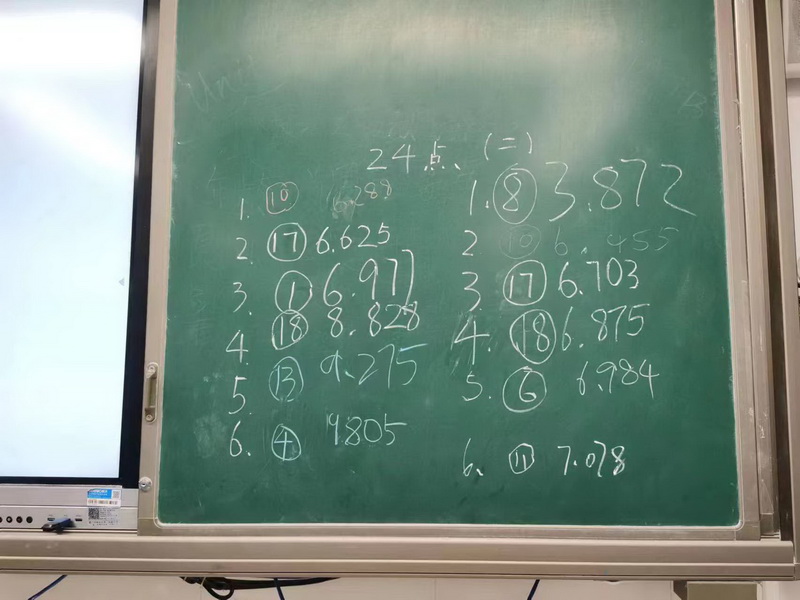 24点 (二)
1. ⑩ 6.288
2. ⑰ 6.625
3. ① 6.977
4. ⑱ 8.828
5. ⑬ 9.275
6. ④ 9.805
1. ⑧ 3.872
2 ⑩ 6.455
3. ⑰ 6.703
4. ⑱ 6.875
5. ⑥ 6.984
6. ⑪ 7.078